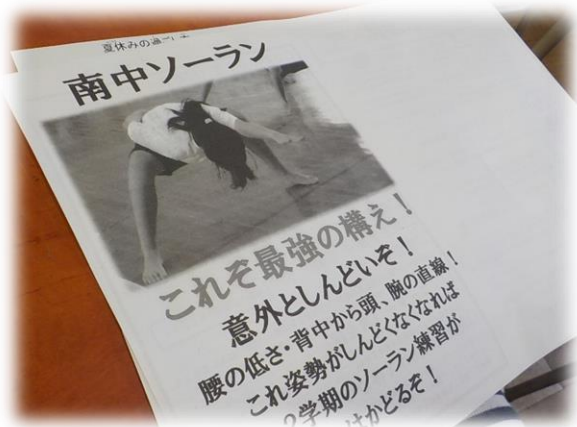 夏休みの過ごし方
南中ソーラン
これぞ最強の構え！
意外としんどいぞ！
腰の低さ・背中から頭、腕の直線！
これ姿勢がしんどくなくなれば
２学期のソーラン練習が
はかどるぞ！